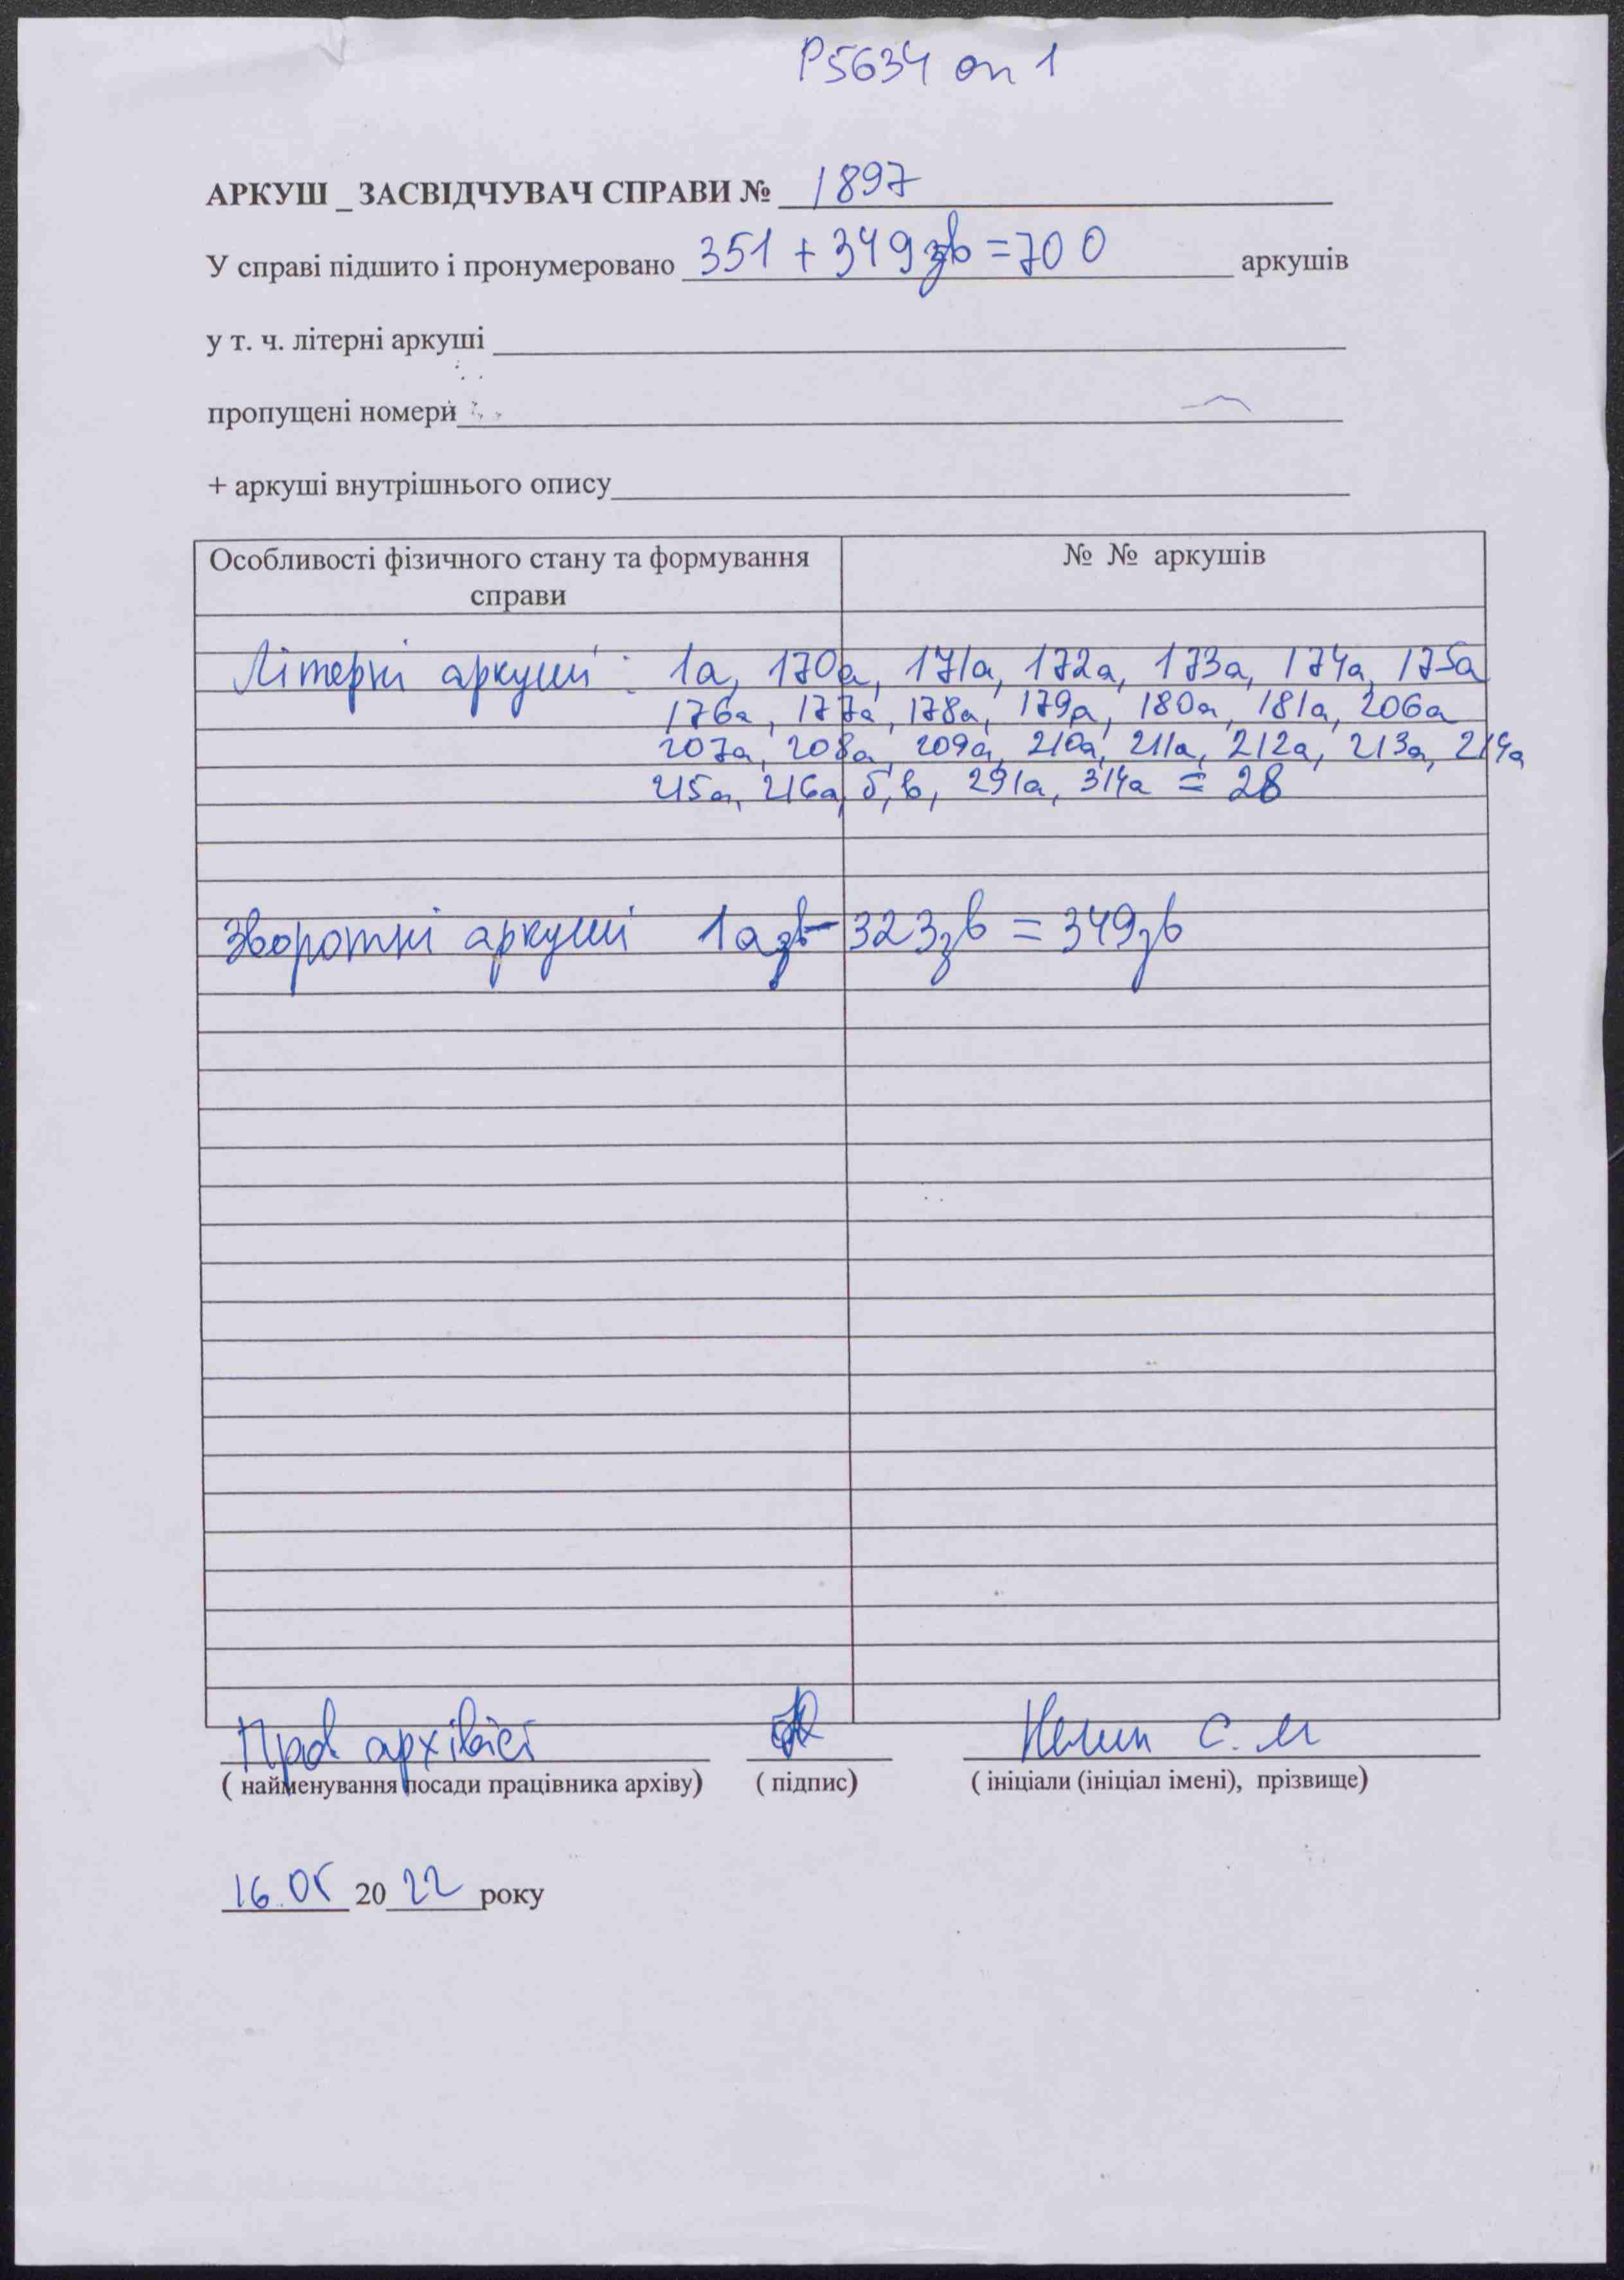 Р5634 оп 1
АРКУШ _ ЗАСВІДЧУВАЧ СПРАВИ № 1897
У справі підшито і пронумеровано 351 + 349 зв = 700 аркушів
у т. ч. літерні аркуші
пропущені номери
+ аркуші внутрішнього опису
Особливості фізичного стану та формування
справи
№ № аркушів
Літерні аркуші : 1а, 170а, 171а, 172а, 173а, 174а, 175а
176а, 177а, 178а, 179а, 180а, 181а, 206а
207а, 208а, 209а, 210а, 211а, 212а, 213а, 214а
215а, 216а, б, в, 291а, 314а = 28
Зворотні аркуші 1а зв - 323 зв = 349 зв
Пров архівіст
С. М
( найменування посади працівника архіву) ( підпис) ( ініціали (ініціал імені), прізвище)
16.05 20 22 року